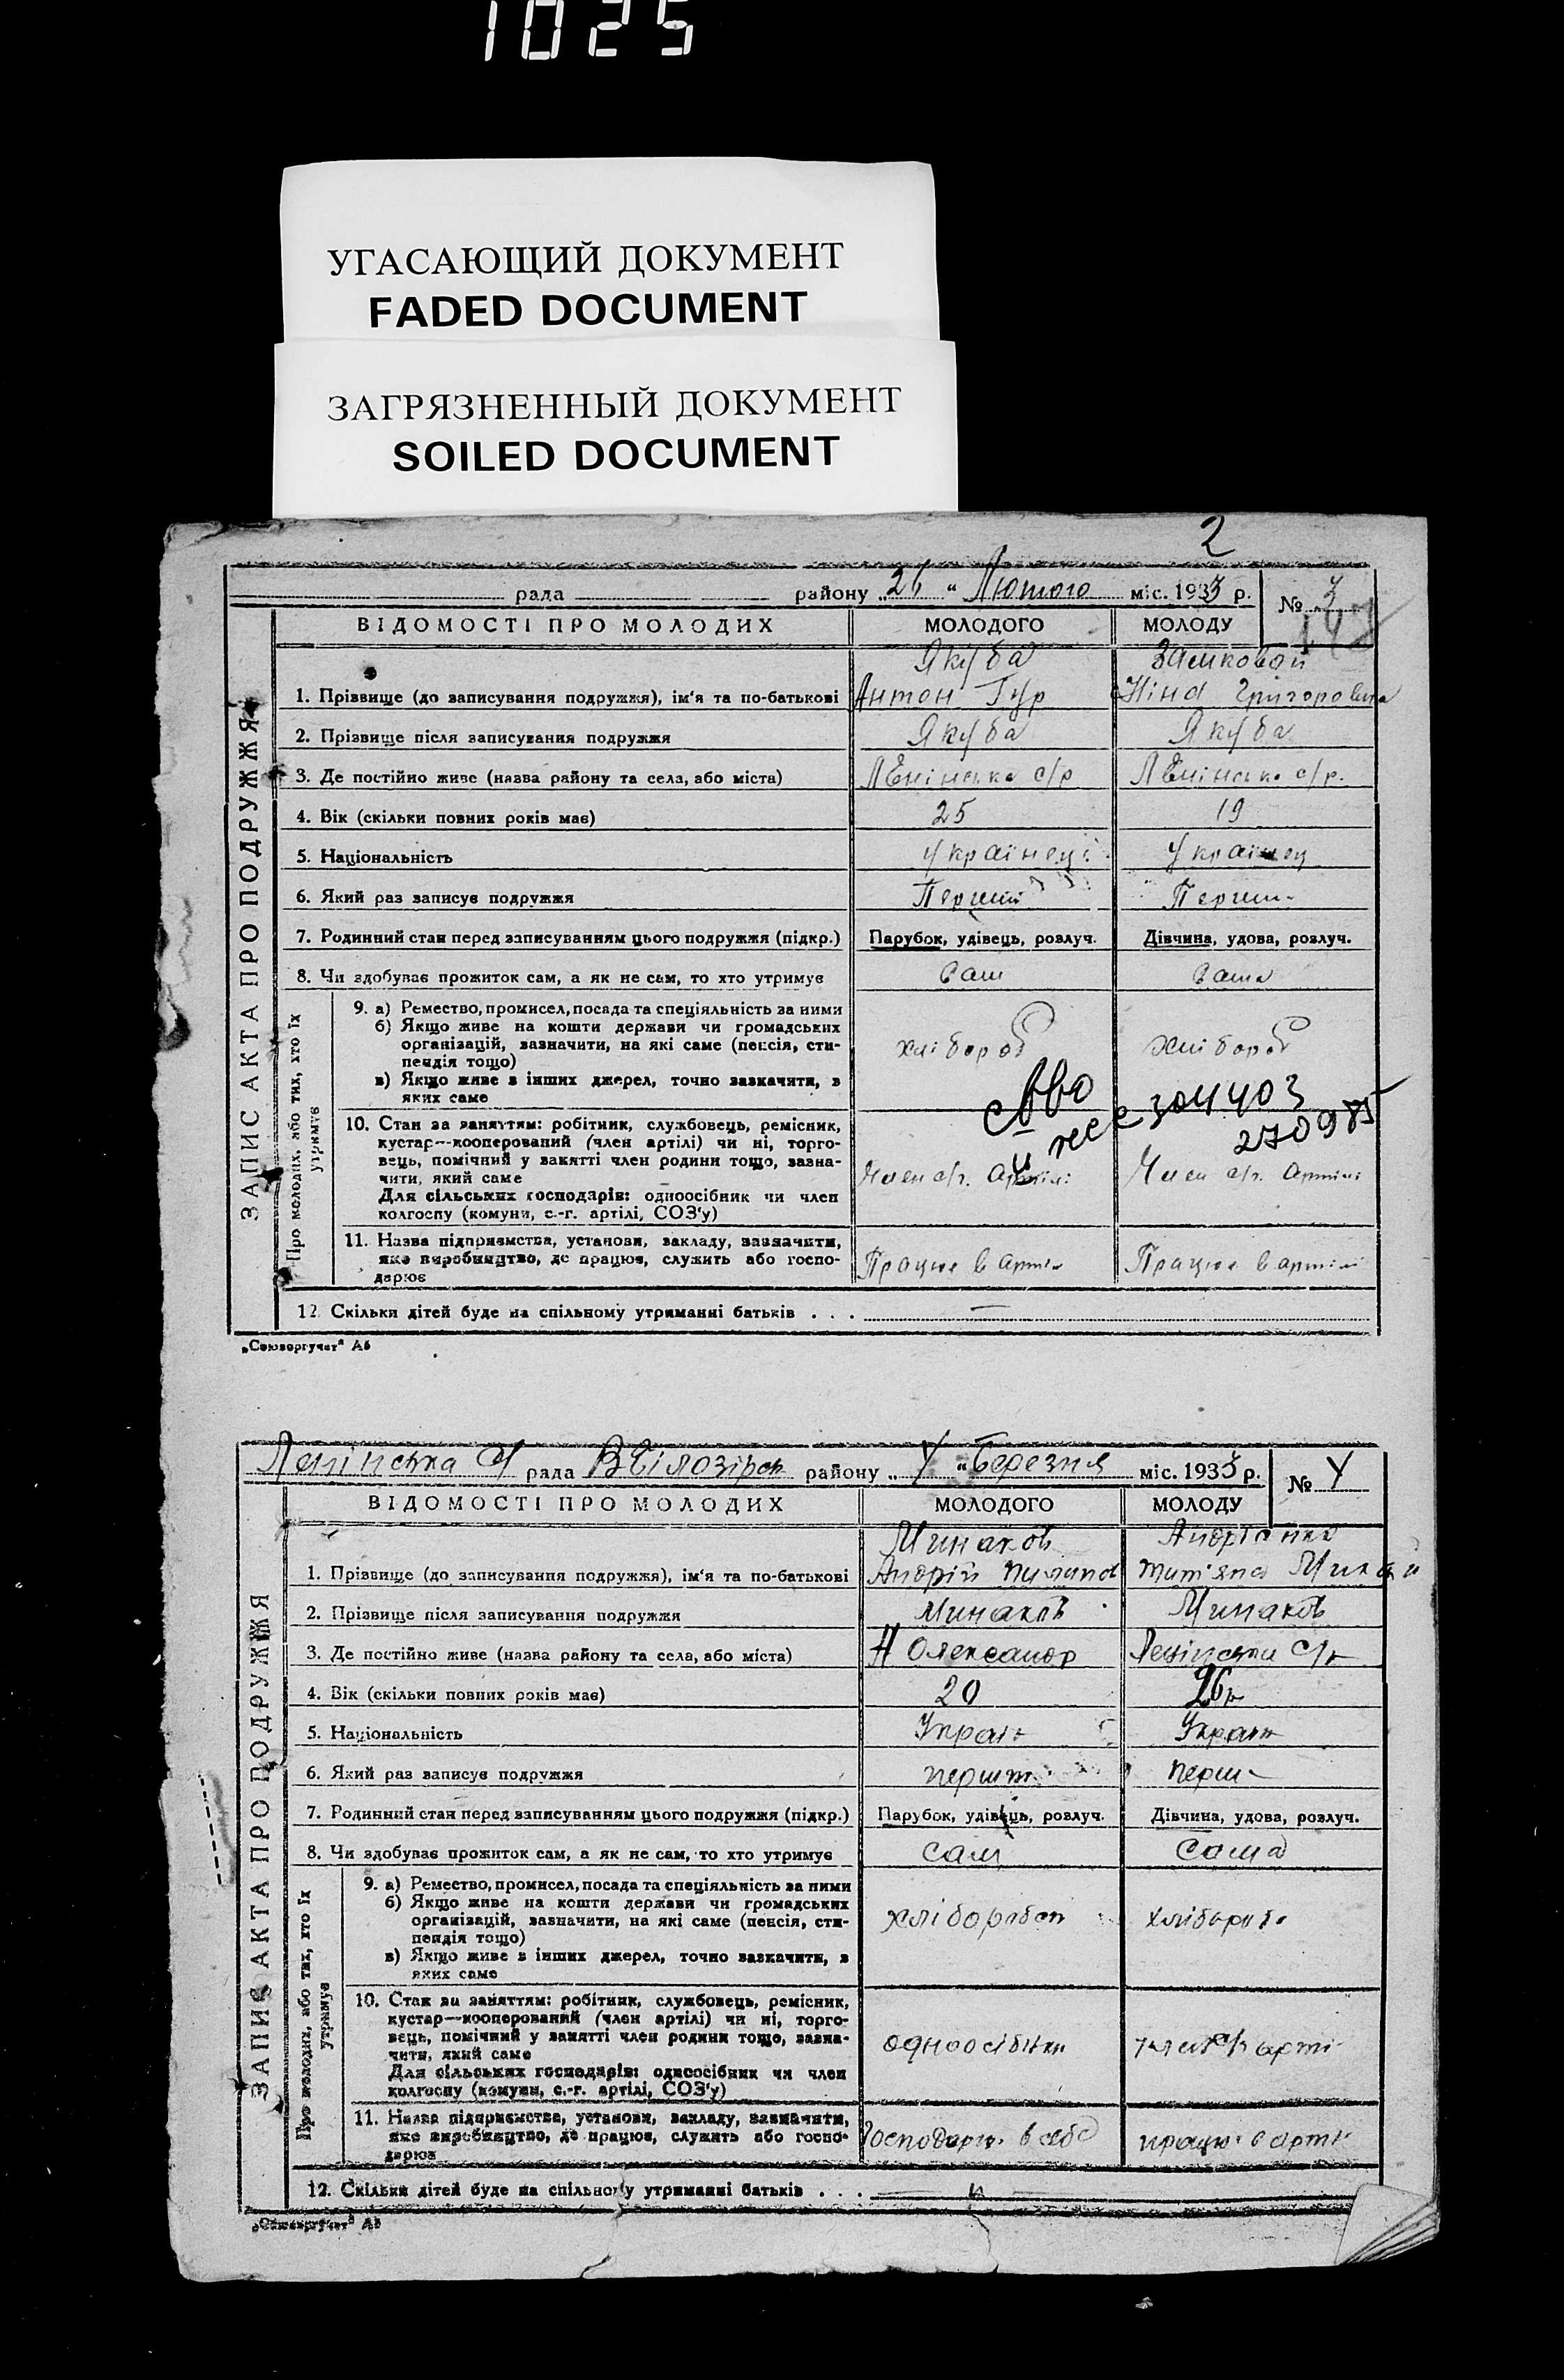 1025
УГАСАЮЩИЙ ДОКУМЕНТ
FADED DOCUMENT
ЗАГРЯЗНЕННЫЙ ДОКУМЕНТ
SOILED DOCUMENT
2
рада району „26 “ Лютого міс. 1933 р. № 3
ЗАПИС АКТА ПРО ПОДРУЖЖЯ
ВІДОМОСТІ ПРО МОЛОДИХ МОЛОДОГО МОЛОДУ
Якуба Замковой
1. Прізвище (до записування подружжя), ім'я та по-батькові Антон Гур Ніна Григоровна
2. Прізвище після записування подружжя Якуба Якуба
3. Де постійно живе (назва району та села, або міста) Ленінська с/р Ленінська с/р.
4. Вік (скільки повних років має) 25 19
5. Національність Українец Українец
6. Який раз записує подружжя Перший Перши
7. Родинний стан перед записуванням цього подружжя (підкр.) Парубок, удівець, розлуч. Дівчина, удова, розлуч.
8. Чи здобуває прожиток сам, а як не сам, то хто утримує Сам Сама
Про молодих, або тих, хто їх утримує
9. а) Ремество, промисел, посада та спеціяльність за ними
б) Якщо живе на кошти держави чи громадських
організацій, зазначити, на які саме (пенсія, сти-
пендія тощо) хлібороб хлібороб
в) Якщо живе з інших джерел, точно зазначити, з
яких саме
304403
270985
10. Стан за заняттям: робітник, службовець, ремісник,
кустар—кооперований (член артілі) чи ні, торго-
вець, помічний у занятті член родини тощо, зазна-
чити, який саме Член с/г. артілі Член с/г. артілі
Для сільських господарів: одноосібник чи член
колгоспу (комуни, с.-г. артілі, СОЗ'у)
11. Назва підприємства, установи, закладу, зазначити,
яке виробництво, де працює, служить або госпо-
дарює Працює в артіл Працює в артілі
12. Скільки дітей буде на спільному утриманні батьків . . . —
„Союзоргучет“ А5
Ленінська с/ рада В Білозірск району „4 “ Березня міс. 1933 р. № 4
ЗАПИС АКТА ПРО ПОДРУЖЖЯ
ВІДОМОСТІ ПРО МОЛОДИХ МОЛОДОГО МОЛОДУ
Минаков Андріанко
1. Прізвище (до записування подружжя), ім'я та по-батькові Андрій Тит'яна
2. Прізвище після записування подружжя Минаков Минаков
3. Де постійно живе (назва району та села, або міста) Н Олександр Ленінськи с/р
4. Вік (скільки повних років має) 20 26р
5. Національність Україн Україн
6. Який раз записує подружжя перший перши
7. Родинний стан перед записуванням цього подружжя (підкр.) Парубок, удівець, розлуч. Дівчина, удова, розлуч.
8. Чи здобуває прожиток сам, а як не сам, то хто утримує Сам Сама
Про молодих, або тих, хто їх утримує
9. а) Ремество, промисел, посада та спеціяльність за ними
б) Якщо живе на кошти держави чи громадських
організацій, зазначити, на які саме (пенсія, сти-
пендія тощо) хлібороб хлібороб
в) Якщо живе з інших джерел, точно зазначити, з
яких саме
10. Стан за заняттям: робітник, службовець, ремісник,
кустар—кооперований (член артілі) чи ні, торго-
вець, помічний у занятті член родини тощо, зазна-
чити, який саме одноосібни член с/г арті
Для сільських господарів: одноосібник чи член
колгоспу (комуни, с.-г. артілі, СОЗ'у)
11. Назва підприємства, установи, закладу, зазначити,
яке виробництво, де працює, служить або госпо-
дарює Господарю. в себе працю. в арті
12. Скільки дітей буде на спільному утриманні батьків . . .
„Союзоргучет“ А5